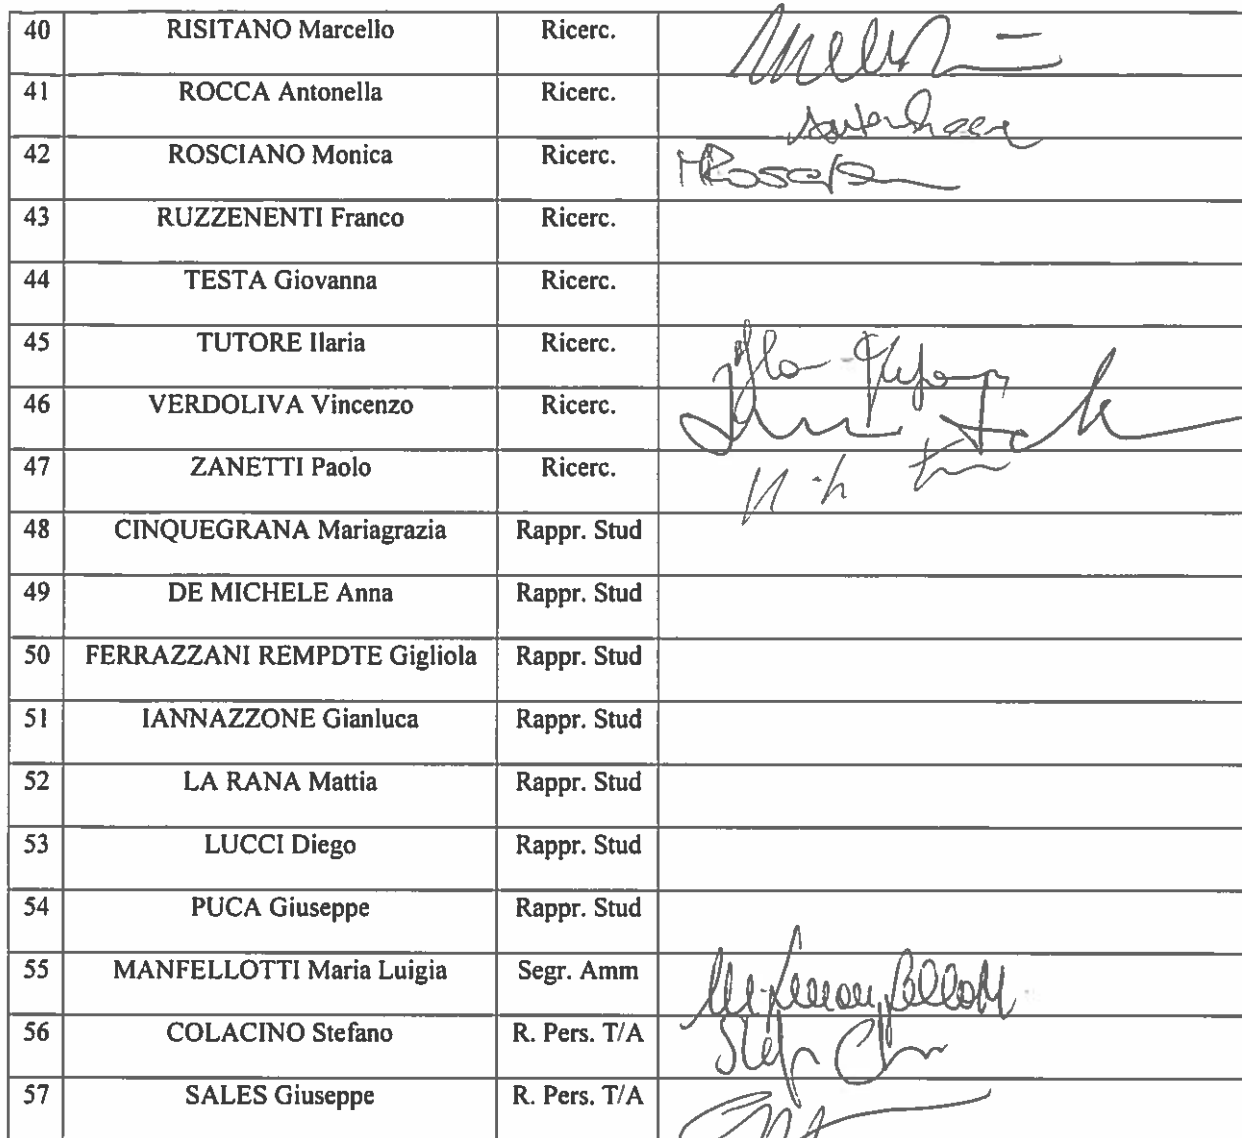 40 RISITANO Marcello Ricerc.
41 ROCCA Antonella Ricerc.
42 ROSCIANO Monica Ricerc.
43 RUZZENENTI Franco Ricerc.
44 TESTA Giovanna Ricerc.
45 TUTORE Ilaria Ricerc.
46 VERDOLIVA Vincenzo Ricerc.
47 ZANETTI Paolo Ricerc.
48 CINQUEGRANA Mariagrazia Rappr. Stud
49 DE MICHELE Anna Rappr. Stud
50 FERRAZZANI REMPDTE Gigliola Rappr. Stud
51 IANNAZZONE Gianluca Rappr. Stud
52 LA RANA Mattia Rappr. Stud
53 LUCCI Diego Rappr. Stud
54 PUCA Giuseppe Rappr. Stud
55 MANFELLOTTI Maria Luigia Segr. Amm
56 COLACINO Stefano R. Pers. T/A
57 SALES Giuseppe R. Pers. T/A